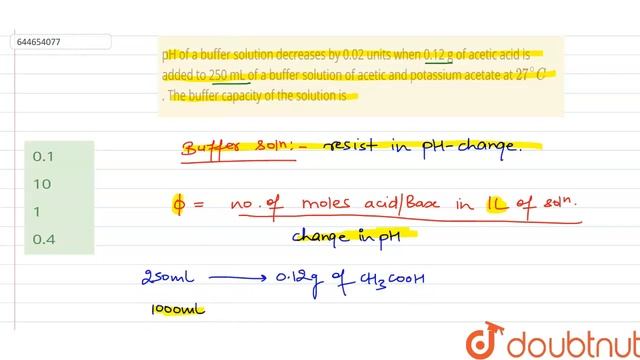 644654077
pH of a buffer solution decreases by 0.02 units when 0.12 g of acetic acid is
added to 250 mL of a buffer solution of acetic and potassium acetate at 27°C
. The buffer capacity of the solution is
0.1
10
1
0.4
Buffer soln:- resist in pH-change.
ϕ = no. of moles acid/Base in 1L of soln.
change in pH
250ml → 0.12g of CH3COOH
1000ml
doubtnut